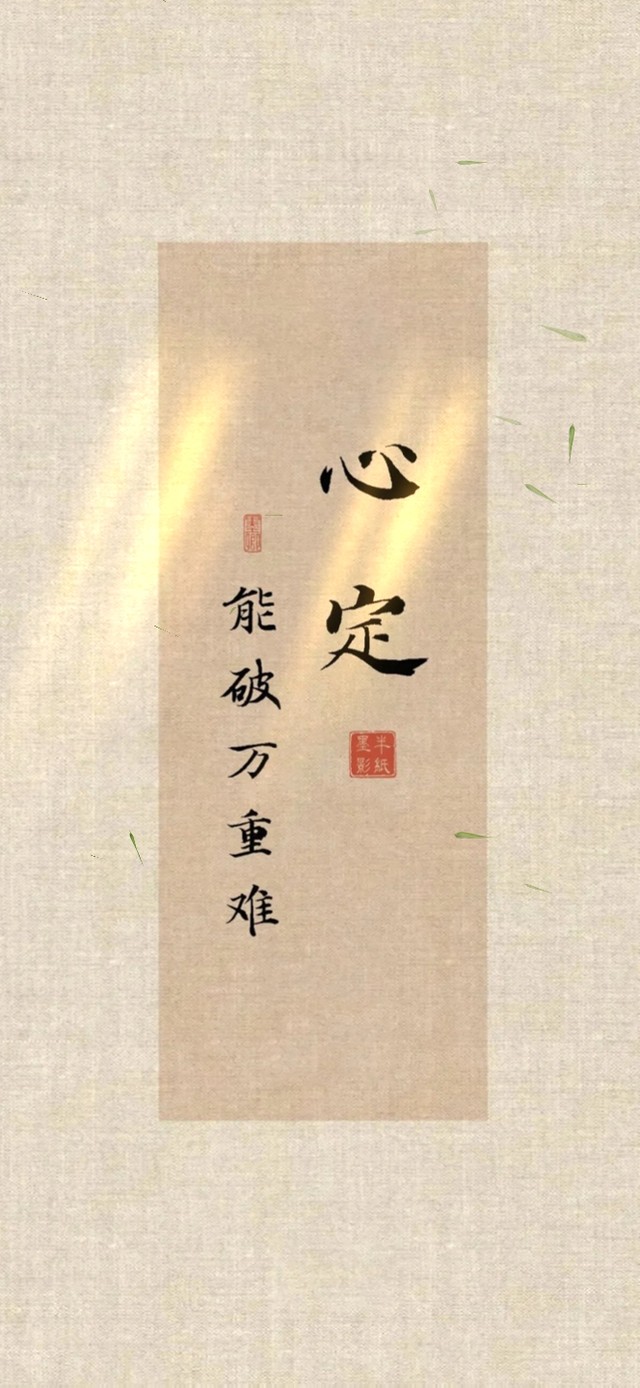 心定
半紙
墨影
能破万重难